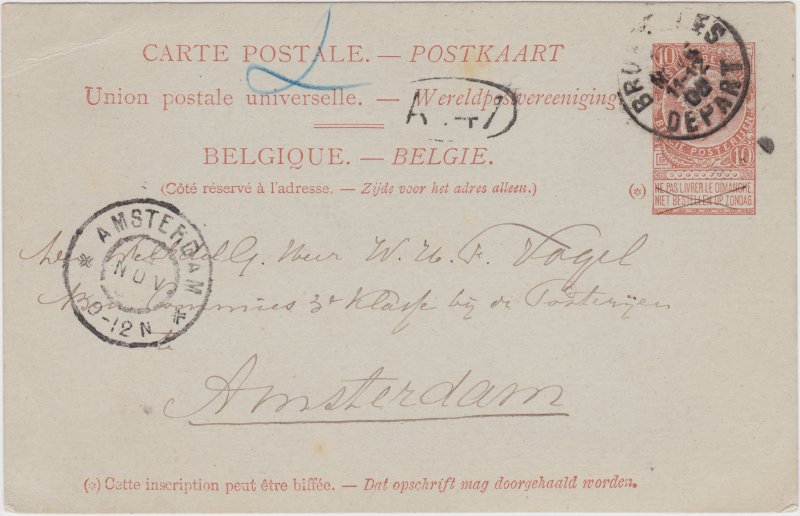 CARTE POSTALE. — POSTKAART
Union postale universelle. — Wereldpostvereeniging
BELGIQUE. — BELGIE.
(Côté réservé à l'adresse. — Zijds voor het adres alleen.)
(*)
10 10
BELGIE POSTERIJEN
10
NE PAS LIVRER LE DIMANCHE
NIET BESTELLEN OP ZONDAG
DEPART
AMSTERDAM
NOV
-12 N
Heer W. H. F. Vogel
Commies 3e Klasse bij de Posterijen
te
Amsterdam
(*) Cette inscription peut être biffée. — Dat opschrift mag doorgehaald worden.